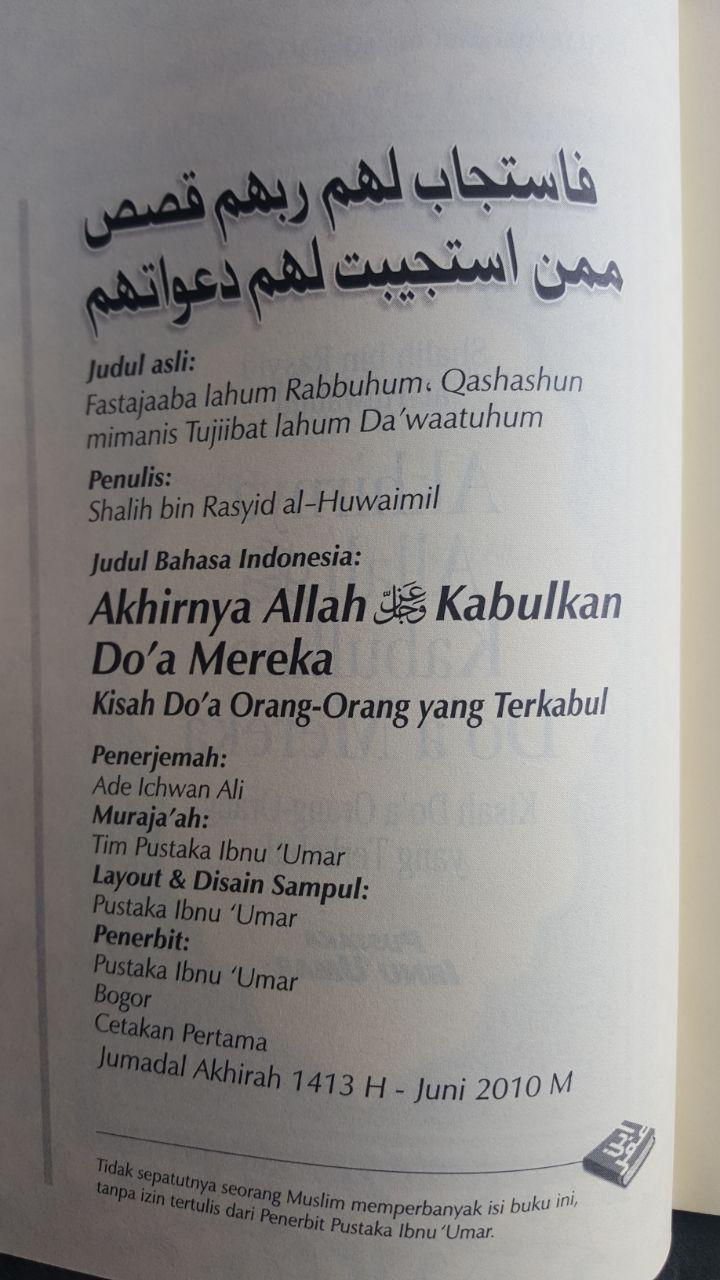 فاستجاب لهم ربهم قصص
ممن استجيبت لهم دعواتهم
Judul asli:
Fastajaaba lahum Rabbuhum، Qashashun
mimanis Tujiibat lahum Da'waatuhum
Penulis:
Shalih bin Rasyid al-Huwaimil
Judul Bahasa Indonesia:
Akhirnya Allah عَزَّ وَجَلَّ Kabulkan
Do'a Mereka
Kisah Do'a Orang-Orang yang Terkabul
Penerjemah:
Ade Ichwan Ali
Muraja'ah:
Tim Pustaka Ibnu 'Umar
Layout & Disain Sampul:
Pustaka Ibnu 'Umar
Penerbit:
Pustaka Ibnu 'Umar
Bogor
Cetakan Pertama
Jumadal Akhirah 1413 H - Juni 2010 M
ابن عمر
Tidak sepatutnya seorang Muslim memperbanyak isi buku ini,
tanpa izin tertulis dari Penerbit Pustaka Ibnu 'Umar.